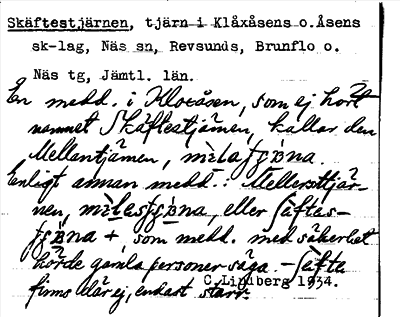 Skäftestjärnen, tjärn i Klåxåsens o.Åsens
sk-lag, Näs sn, Revsunds, Brunflo o.
Näs tg, Jämtl. län.
En medd. i Kloxåsen, som ej hört
namnet Skäftestjärnen, kallar den
Mellantjärnen,
Enligt annan medd.: Mellersttjär-
nen, eller
+, som medd. med säkerhet
hörde gamla personer säga. –
finns där ej, endast starr.
C.Lindberg 1934.